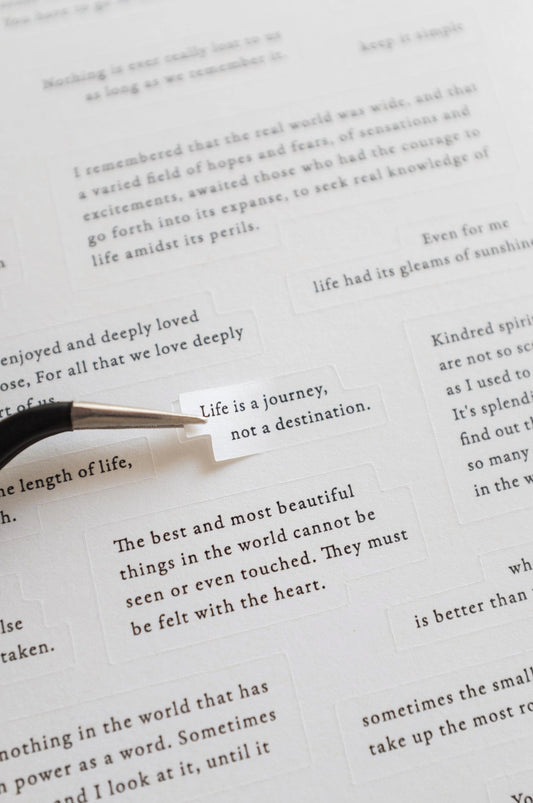 You have to go
Nothing is ever really lost to us
as long as we remember it.
keep it simple
I remembered that the real world was wide, and that
a varied field of hopes and fears, of sensations and
excitements, awaited those who had the courage to
go forth into its expanse, to seek real knowledge of
life amidst its perils.
Even for me
life had its gleams of sunshine
enjoyed and deeply loved
ose, For all that we love deeply
rt of us
Kindred spiri
are not so sc
as I used to
It's splendi
find out th
so many
in the w
Life is a journey,
not a destination.
he length of life,
h.
The best and most beautiful
things in the world cannot be
seen or even touched. They must
be felt with the heart.
wh
is better than
lse
taken.
nothing in the world that has
h power as a word. Sometimes
and I look at it, until it
sometimes the small
take up the most ro
Yo